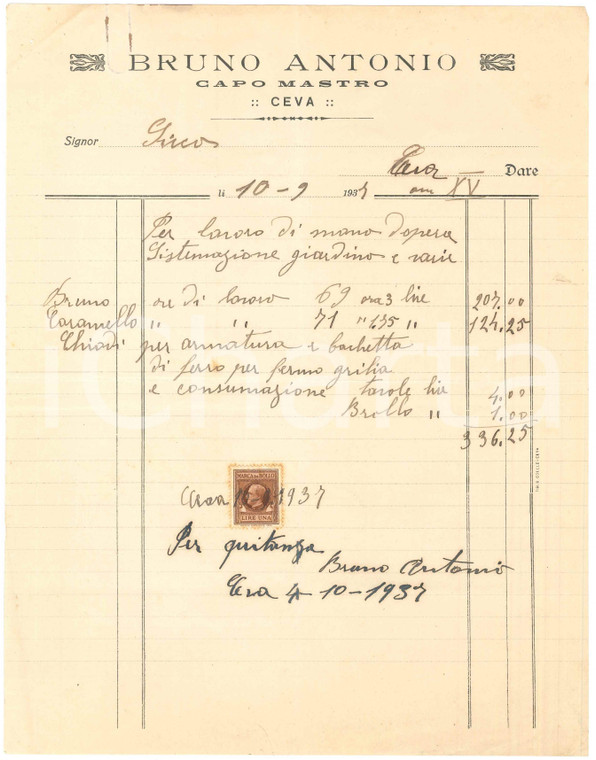 BRUNO ANTONIO
CAPO MASTRO
:: CEVA ::
Signor
Ceva Dare
li 10-9 1937 XV
Per lavoro di mano dopera
Sistemazione giardino e varii
Bruno ore di lavoro 69 ora 3 lire 207.00
Caramello " " 71 " 1.75 " 124.25
Chiodi per armatura e bachetta
di ferro per fermo grilia
e consumazione tavole lire 4.00
Brollo " 1.00
336.25
MARCA DA BOLLO
LIRE UNA
Ceva 1937
Per quitanza
Bruno Antonio
Ceva 4-10-1937